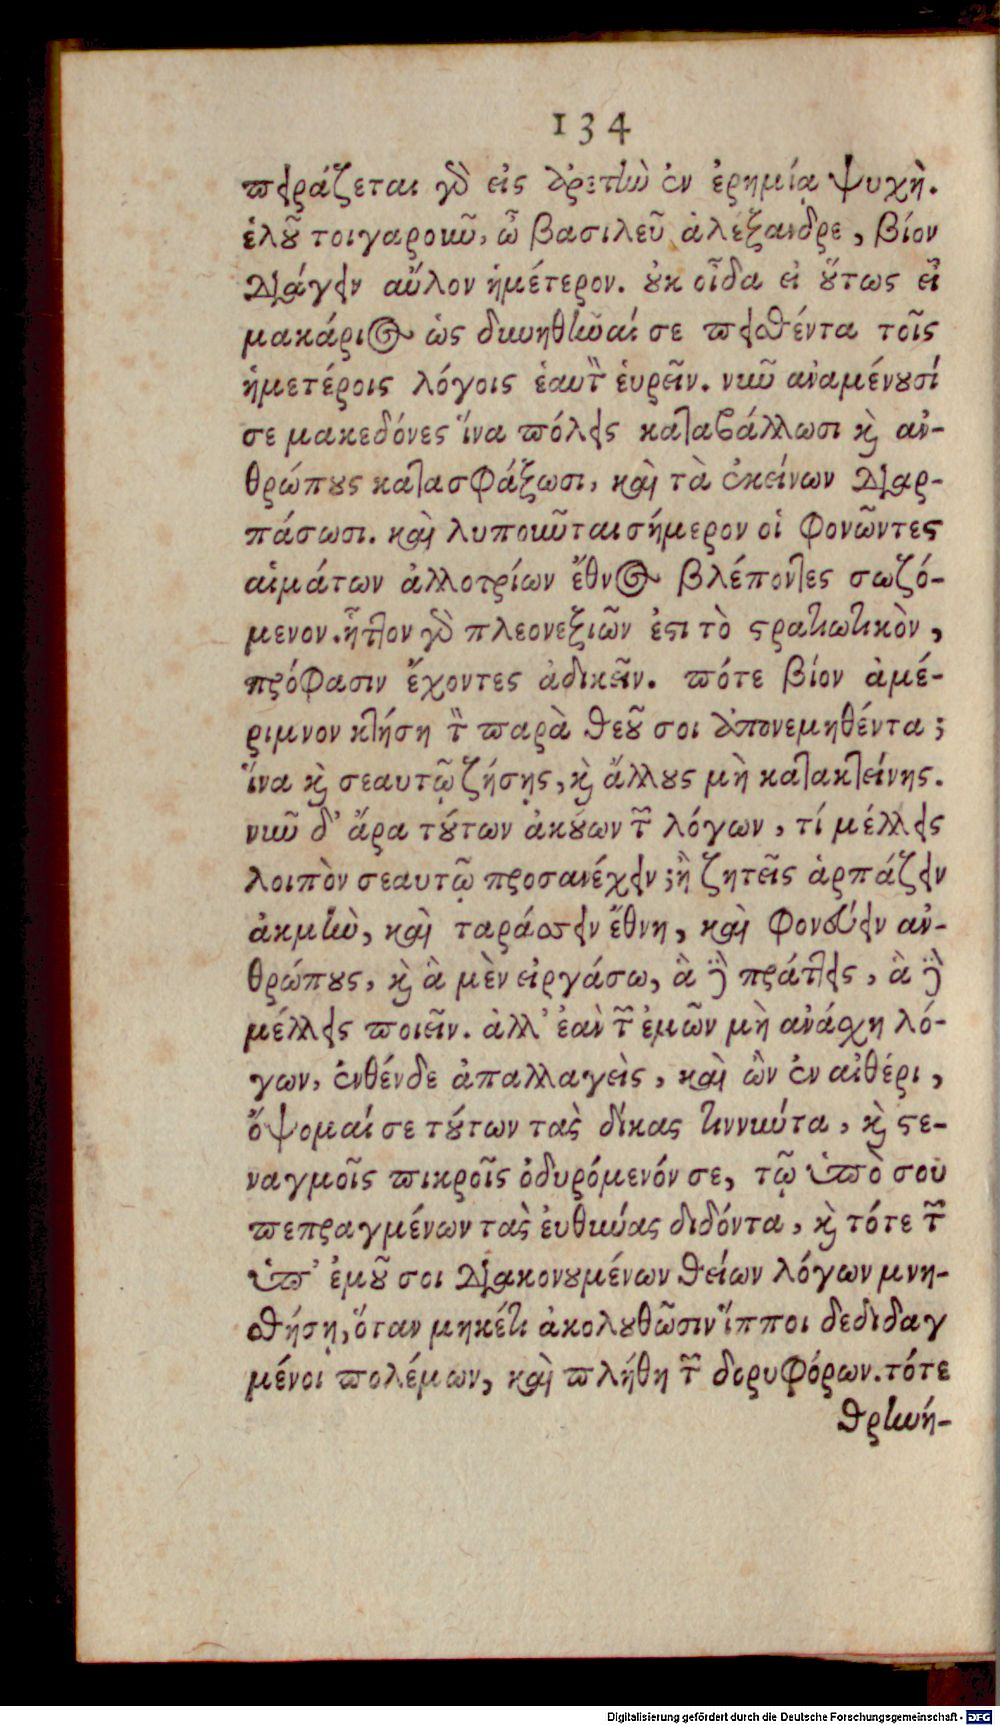 134
πειράζεται γὸ εἰς ἀρετὴν ἐν ἐρημίᾳ ψυχὴ.
ἑλοῦ τοιγαροῦν, ὦ βασιλεῦ ἀλέξανδρε, βίον
διάγειν αὔλον ἡμέτερον. οὐκ οἶδα εἰ οὕτως εἶ
μακάριος ὡς δυνηθῆναί σε πεισθέντα τοῖς
ἡμετέροις λόγοις ἑαυτὸν ἑυρεῖν. νῦν ἀναμένουσί
σε μακεδόνες ἵνα πόλεις καταβάλλωσι καὶ ἀν-
θρώπους κατασφάξωσι, καὶ τὰ ἐκείνων διαρ-
πάσωσι. καὶ λυποῦνται σήμερον οἱ φονῶντες
αἱμάτων ἀλλοτρίων ἔθνος βλέποντες σωζό-
μενον. ἧττον γὸ πλεονεξιῶν ἐστὶ τὸ στρατιωτικὸν,
πρόφασιν ἔχοντες ἀδικεῖν. πότε βίον ἀμέ-
ριμνον κτήσῃ τὸν παρὰ θεοῦ σοι ἀπονεμηθέντα;
ἵνα καὶ σεαυτῷ ζήσῃς, καὶ ἄλλους μὴ κατακτείνης.
νῦν δ' ἄρα τούτων ἀκούων τῶν λόγων, τί μέλλεις
λοιπὸν σεαυτῷ προσανέχειν; ἢ ζητεῖς ἁρπάζειν
ἀκμὴν, καὶ ταράσσειν ἔθνη, καὶ φονεύειν ἀν-
θρώπους, καὶ ἃ μὲν εἰργάσω, ἃ δὲ πράττεις, ἃ δὲ
μέλλεις ποιεῖν. ἀλλ' ἐὰν τῶν ἐμῶν μὴ ἀνάσχῃ λό-
γων, ἐνθένδε ἀπαλλαγεὶς, καὶ ὢν ἐν αἰθέρι,
ὄψομαί σε τούτων τὰς δίκας τιννύντα, καὶ στε-
ναγμοῖς πικροῖς ὀδυρόμενόν σε, τῷ ὑπὸ σου
πεπραγμένων τὰς ἐυθύνας διδόντα, καὶ τότε τῶν
ὑπ' ἐμοῦ σοι διακονουμένων θείων λόγων μνη-
σθήσῃ, ὅταν μηκέτι ἀκολουθῶσιν ἵπποι δεδιδαγ
μένοι πολέμων, καὶ πλήθη τῶν δορυφόρων. τότε
θρηνή-
Digitalisierung gefördert durch die Deutsche Forschungsgemeinschaft - DFG